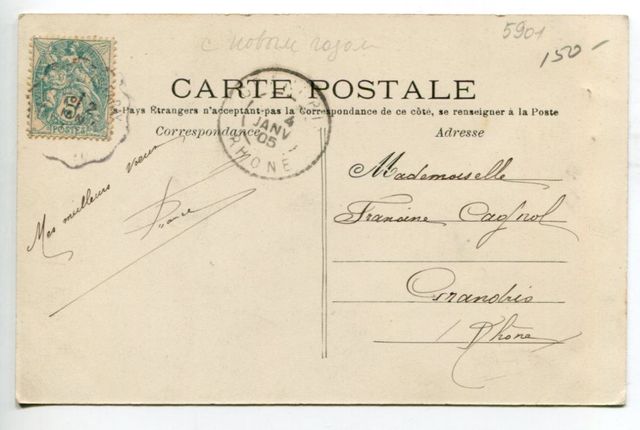 5901
150-
с новым годом
CARTE POSTALE
s Pays Étrangers n'acceptant pas la Correspondance de ce côté, se renseigner à la Poste
Correspondance
Adresse
4
JANV
05
RHONE
POSTES
Mes meilleurs vœux
Mademoiselle
Francine Cagnol
Grandris
Rhône